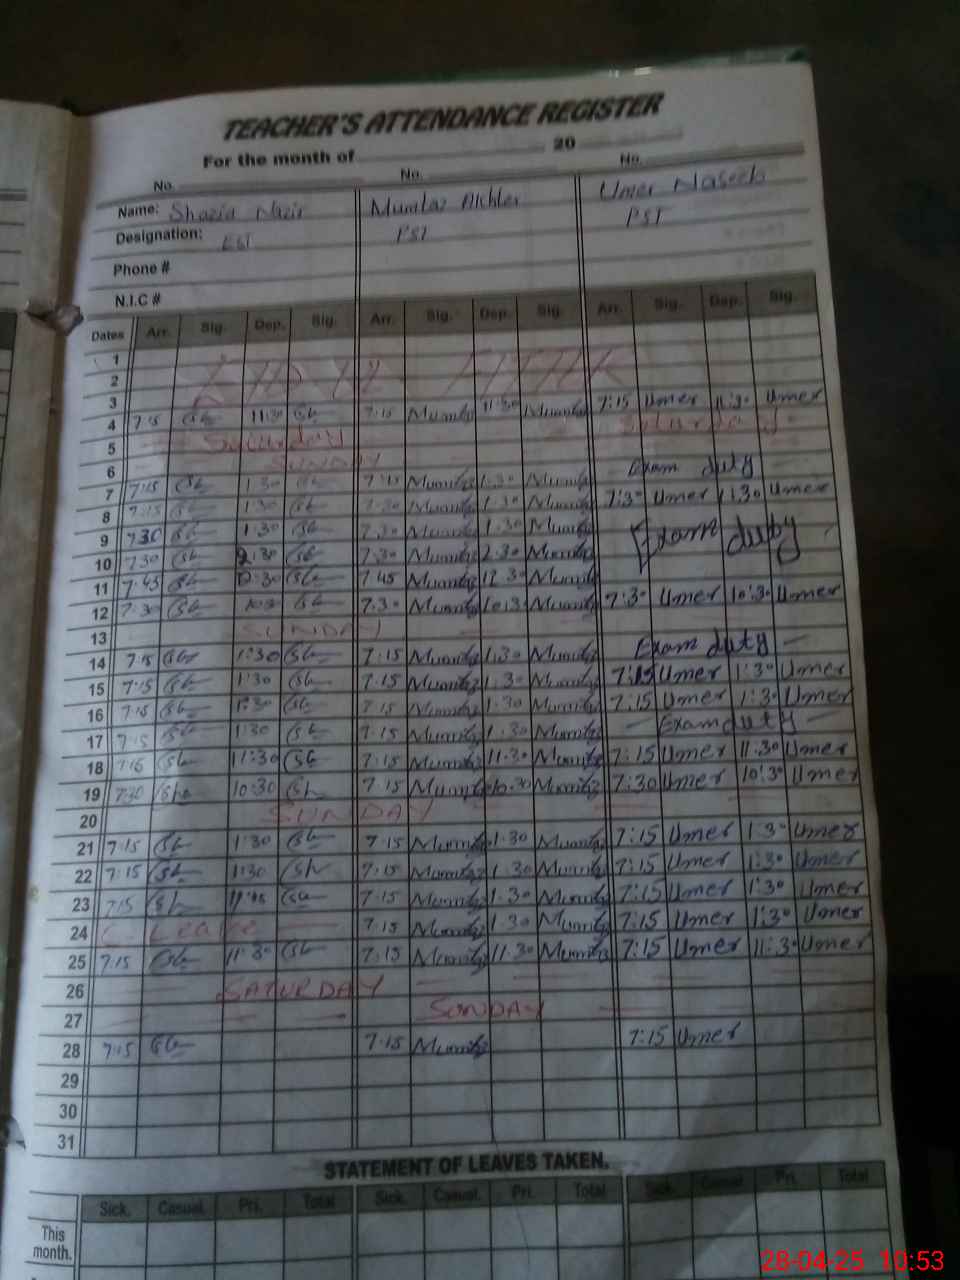 TEACHER'S ATTENDANCE REGISTER
For the month of 20
No. No. No.
Name: Shazia Nazir Mumtaz Akhter Umer Naseeb
Designation: EST PST PST
Phone #
N.I.C #
Dates Arr. Sig. Dep. Sig. Arr. Sig. Dep. Sig. Arr. Sig. Dep. Sig.
1
2
3
4 7:15 11:30 7:15 Mumtaz 11:30 Mumtaz 7:15 Umer 11:30 Umer
5 Saturday Saturday
6 SUNDAY
7 7:15 1:30 7:15 Mumtaz 1:30 Mumtaz Exam duty
8 7:15 1:30 Mumtaz 1:30 Mumtaz 7:30 Umer 1:30 Umer
9 7:30 1:30 7:30 Mumtaz 1:30 Mumtaz Exam duty
10 7:30 2:30 7:30 Mumtaz 2:30 Mumtaz
11 7:45 12:30 7:45 Mumtaz 12:30 Mumtaz
12 7:30 7:30 Mumtaz 10:30 Mumtaz 7:30 Umer 10:30 Umer
13 SUNDAY
14 7:15 1:30 7:15 Mumtaz 1:30 Mumtaz Exam duty
15 7:15 1:30 7:15 Mumtaz 1:30 Mumtaz 7:15 Umer 1:30 Umer
16 7:15 1:30 7:15 Mumtaz 1:30 Mumtaz 7:15 Umer 1:30 Umer
17 7:15 1:30 7:15 Mumtaz 1:30 Mumtaz Exam duty
18 7:15 11:30 7:15 Mumtaz 11:30 Mumtaz 7:15 Umer 11:30 Umer
19 7:30 10:30 7:15 Mumtaz 10:30 Mumtaz 7:30 Umer 10:30 Umer
20 SUNDAY
21 7:15 1:30 7:15 Mumtaz 1:30 Mumtaz 7:15 Umer 1:30 Umer
22 7:15 1:30 7:15 Mumtaz 1:30 Mumtaz 7:15 Umer 1:30 Umer
23 7:15 7:15 Mumtaz 1:30 Mumtaz 7:15 Umer 1:30 Umer
24 C. Leave 7:15 Mumtaz 1:30 Mumtaz 7:15 Umer 1:30 Umer
25 7:15 11:30 7:15 Mumtaz 11:30 Mumtaz 7:15 Umer 11:30 Umer
26 SATURDAY
27 SUNDAY
28 7:15 7:15 Mumtaz 7:15 Umer
29
30
31
STATEMENT OF LEAVES TAKEN.
Sick. Casual. Pri. Total Sick. Casual. Pri. Total Sick. Casual Pri. Total
This month.
28-04-25 10:53